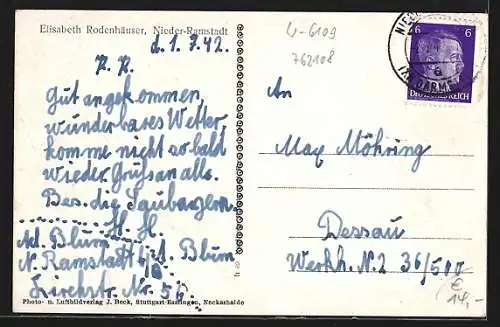 Elisabeth Rodenhäuser, Nieder-Ramstadt
d. 1.7.42.
Gut angekommen,
wunderbares Wetter
komme nicht so bald
wieder. Gruß an alle.
Bes. die Saubazern.
H. H.
Ad. Blum
N. Ramstadt Ad. Blum
Kirchstr. Nr. 5
Photo- u. Luftbildverlag J. Beck, Stuttgart-Eßlingen, Neckarhalde
4-6109
762108
6 6
DEUTSCHES REICH
An
Max Möhring
Dessau
Werkh. N.2 36/500
€ 14,-